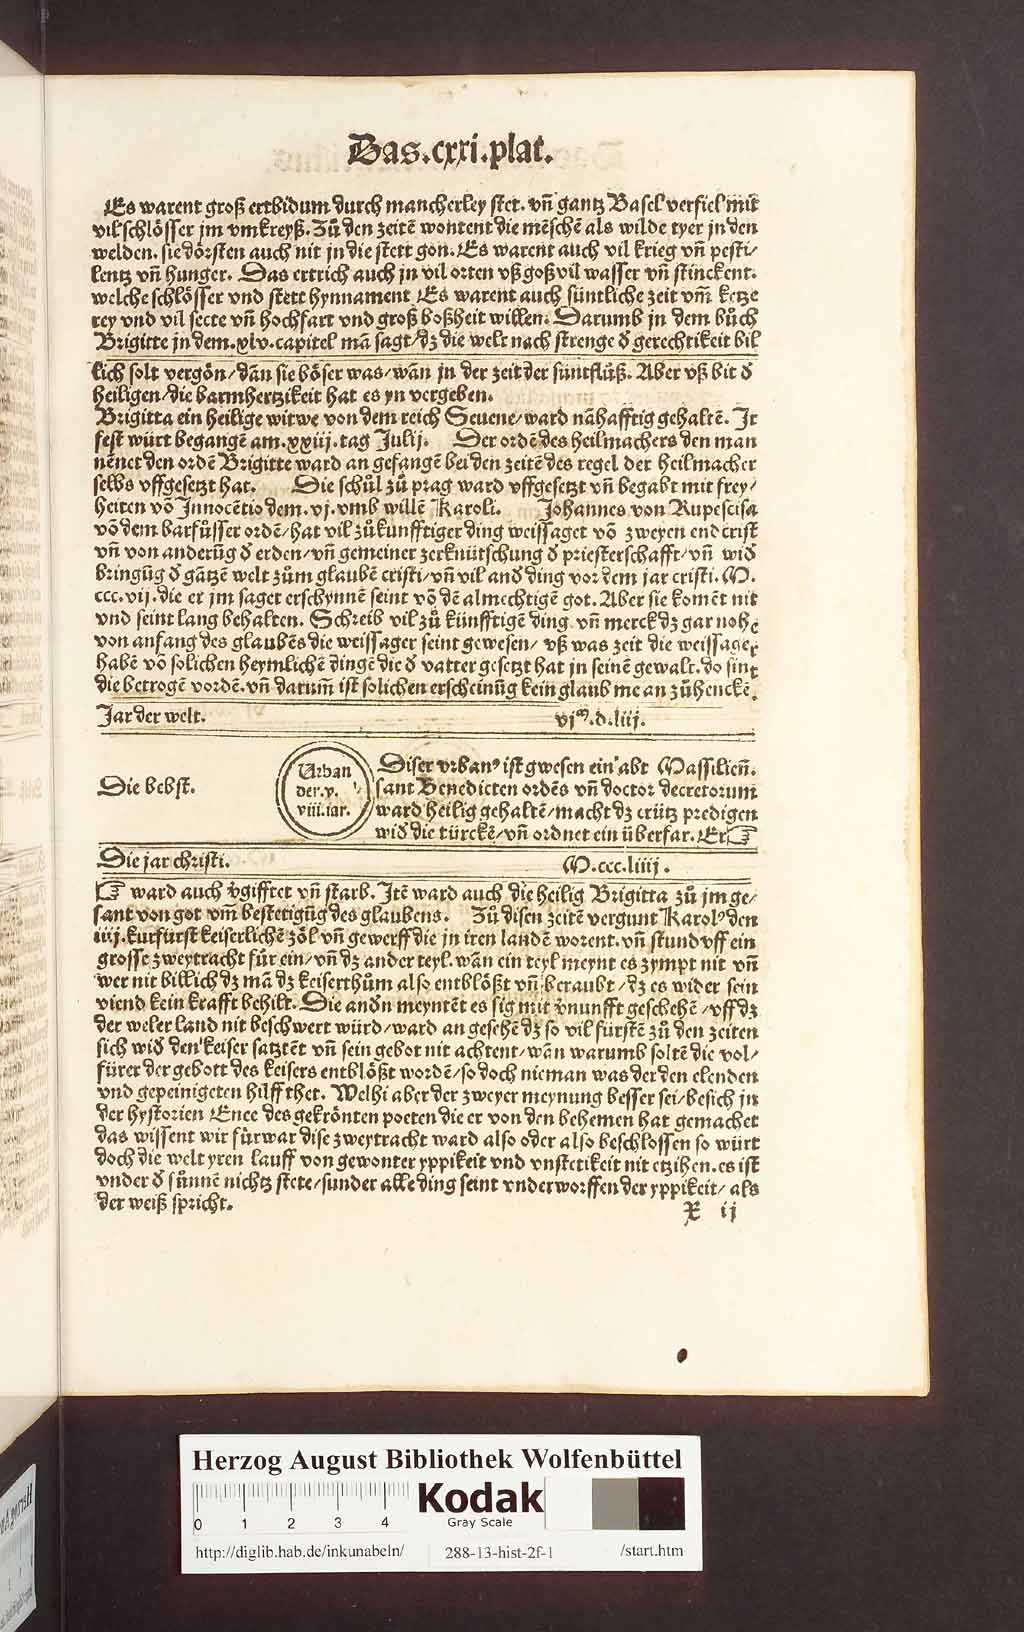 Das.cxxi.plat.
Es warent groß ertbidum durch mancherley stet. vñ gantz Basel verfiel mit
vil schlösser jm vmkreyß. Zů den zeitē wontent die mēschē als wilde tyer jn den
welden. sie dörsten auch nit in die stett gon. Es warent auch vil krieg vñ pesti/
lentz vñ hunger. Das ertrich auch jn vil orten vß goß vil wasser vñ stinckent.
welche schlösser vnd stett hynnament Es warent auch süntliche zeit vm̄ ketze
rey vnd vil secte vñ hochfart vnd groß boßheit willen. Darumb jn dem bůch
Brigitte jn dem.xlv.capitel mā sagt/dz die welt nach strenge đ gerechtikeit bil
lich solt vergōn/dan sie böser was/wān jn der zeit der süntflůß. Aber vß bit đ
heiligen/die barmhertzikeit hat es yn vergeben.
Brigitta ein heilige witwe von dem reich Seuene/ward nāhafftig gehaltē. Jr
fest würt begangē am.xxiij.tag Julij. Der ordē des heilmachers den man
nēnet den ordē Brigitte ward an gefangē bei den zeitē des regel der heilmacher
selbs vffgesetzt hat. Die schůl zů prag ward vffgesetzt vñ begabt mit frey/
heiten vō Innocētio dem.vj.vmb willē Karoli. Johannes von Rupescisa
vō dem barfůsser ordē/hat vil zůkunfftiger ding weissaget vō zweyen end crist
vñ von anderūg đ erden/vñ gemeiner zerknütschung đ priesterschafft/vñ wiđ
bringūg đ gātzē welt zům glaubē cristi/vñ vil anđ ding vor dem jar cristi. M.
ccc.vij.die er jm saget erschynnē seint vō dē almechtigē got. Aber sie komēt nit
vnd seint lang behalten. Schreib vil zů künfftigē ding vñ merck dz gar nohe
von anfang des glaubēs die weissager seint gewesen/vß was zeit die weissager
habē vō solichen heymlichē dingē die đ vatter gesetzt hat jn seinē gewalt.do sint
die betrogē vordē.vñ darum̄ ist solichen erscheinūg kein glaub me an zůhenckē.
Jar der welt. vjm.d.liij.
Die bebst.
Urban
der.v.
viii.iar.
Diser vrban9 ist gwesen ein abt Massilieñ.
sant Benedicten ordēs vñ doctor decretorum
ward heilig gehaltē/macht dz crütz predigen
wiđ die türckē/vñ ordnet ein überfar. Er☞
Die jar christi. M.ccc.liiij.
☞ ward auch v̄gifftet vñ starb. Jtē ward auch die heilig Brigitta zů jm ge/
sant von got vm̄ bestetigūg des glaubens. Zů disen zeitē vergunt Karol9 den
iiij.kurfürst keiserlichē zōl vñ gewerff die jn iren landē worent.vñ stund vff ein
grosse zweytracht für ein/vñ dz ander teyl.wān ein teyl meynt es zympt nit vñ
wer nit billich dz mā dz keiserthům also entblößt vñ beraubt/dz es wider sein
viend kein krafft behilt. Die anđn meyntēt es sig mit v̄nunfft geschehē/vff dz
der weler land nit beschwert würd/ward an gesehē dz so vil fürstē zů den zeiten
sich wiđ den keiser satztēt vñ sein gebot nit achtent/wān warumb soltē die vol/
fürer der gebott des keisers entblößt wordē/so doch nieman was der den elenden
vnd gepeinigeten hilff thet. Welhi aber der zweyer meynung besser sei/besich jn
der hystorien Enee des gekrönten poeten die er von den behemen hat gemachet
das wissent wir fürwar dise zweytracht ward also oder also beschlossen so würt
doch die welt yren lauff von gewonter yppikeit vnd vnstetikeit nit etzihen.es ist
vnder đ sůnnē nichtz stete/sunder alle ding seint vnderworffen der yppikeit/als
der weiß spricht.
X ij
Herzog August Bibliothek Wolfenbüttel
0 1 2 3 4
Kodak
Gray Scale
http://diglib.hab.de/inkunabeln/ 288-13-hist-2f-1 /start.htm